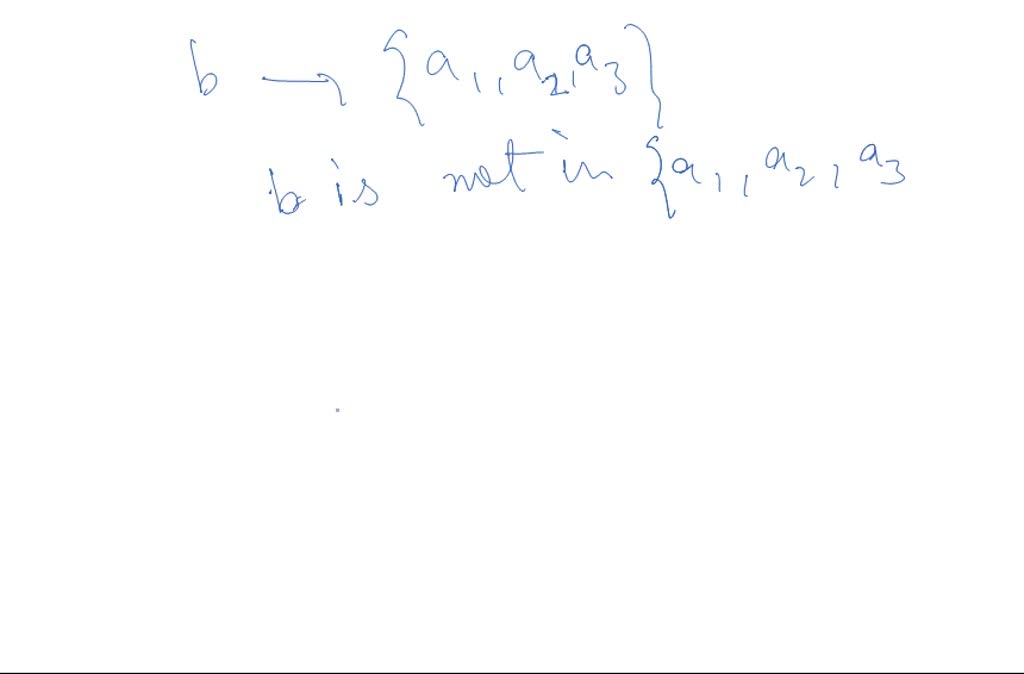 b → {a₁, a₂, a₃}
b is not in {a₁, a₂, a₃